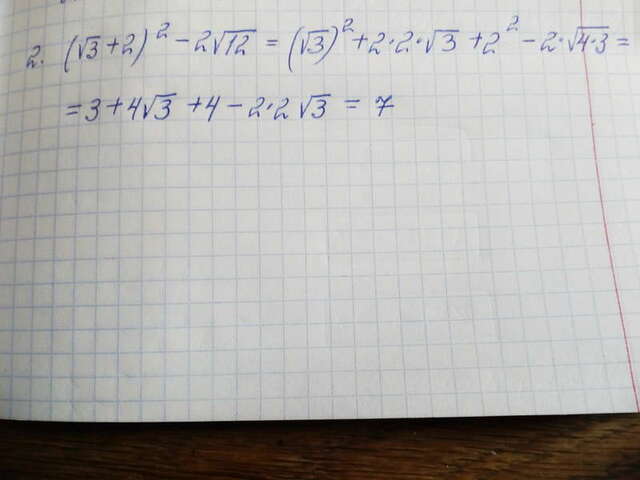 2. (√3 + 2)² - 2√12 = (√3)² + 2·2·√3 + 2² - 2·√4·3 =
= 3 + 4√3 + 4 - 2·2√3 = 7